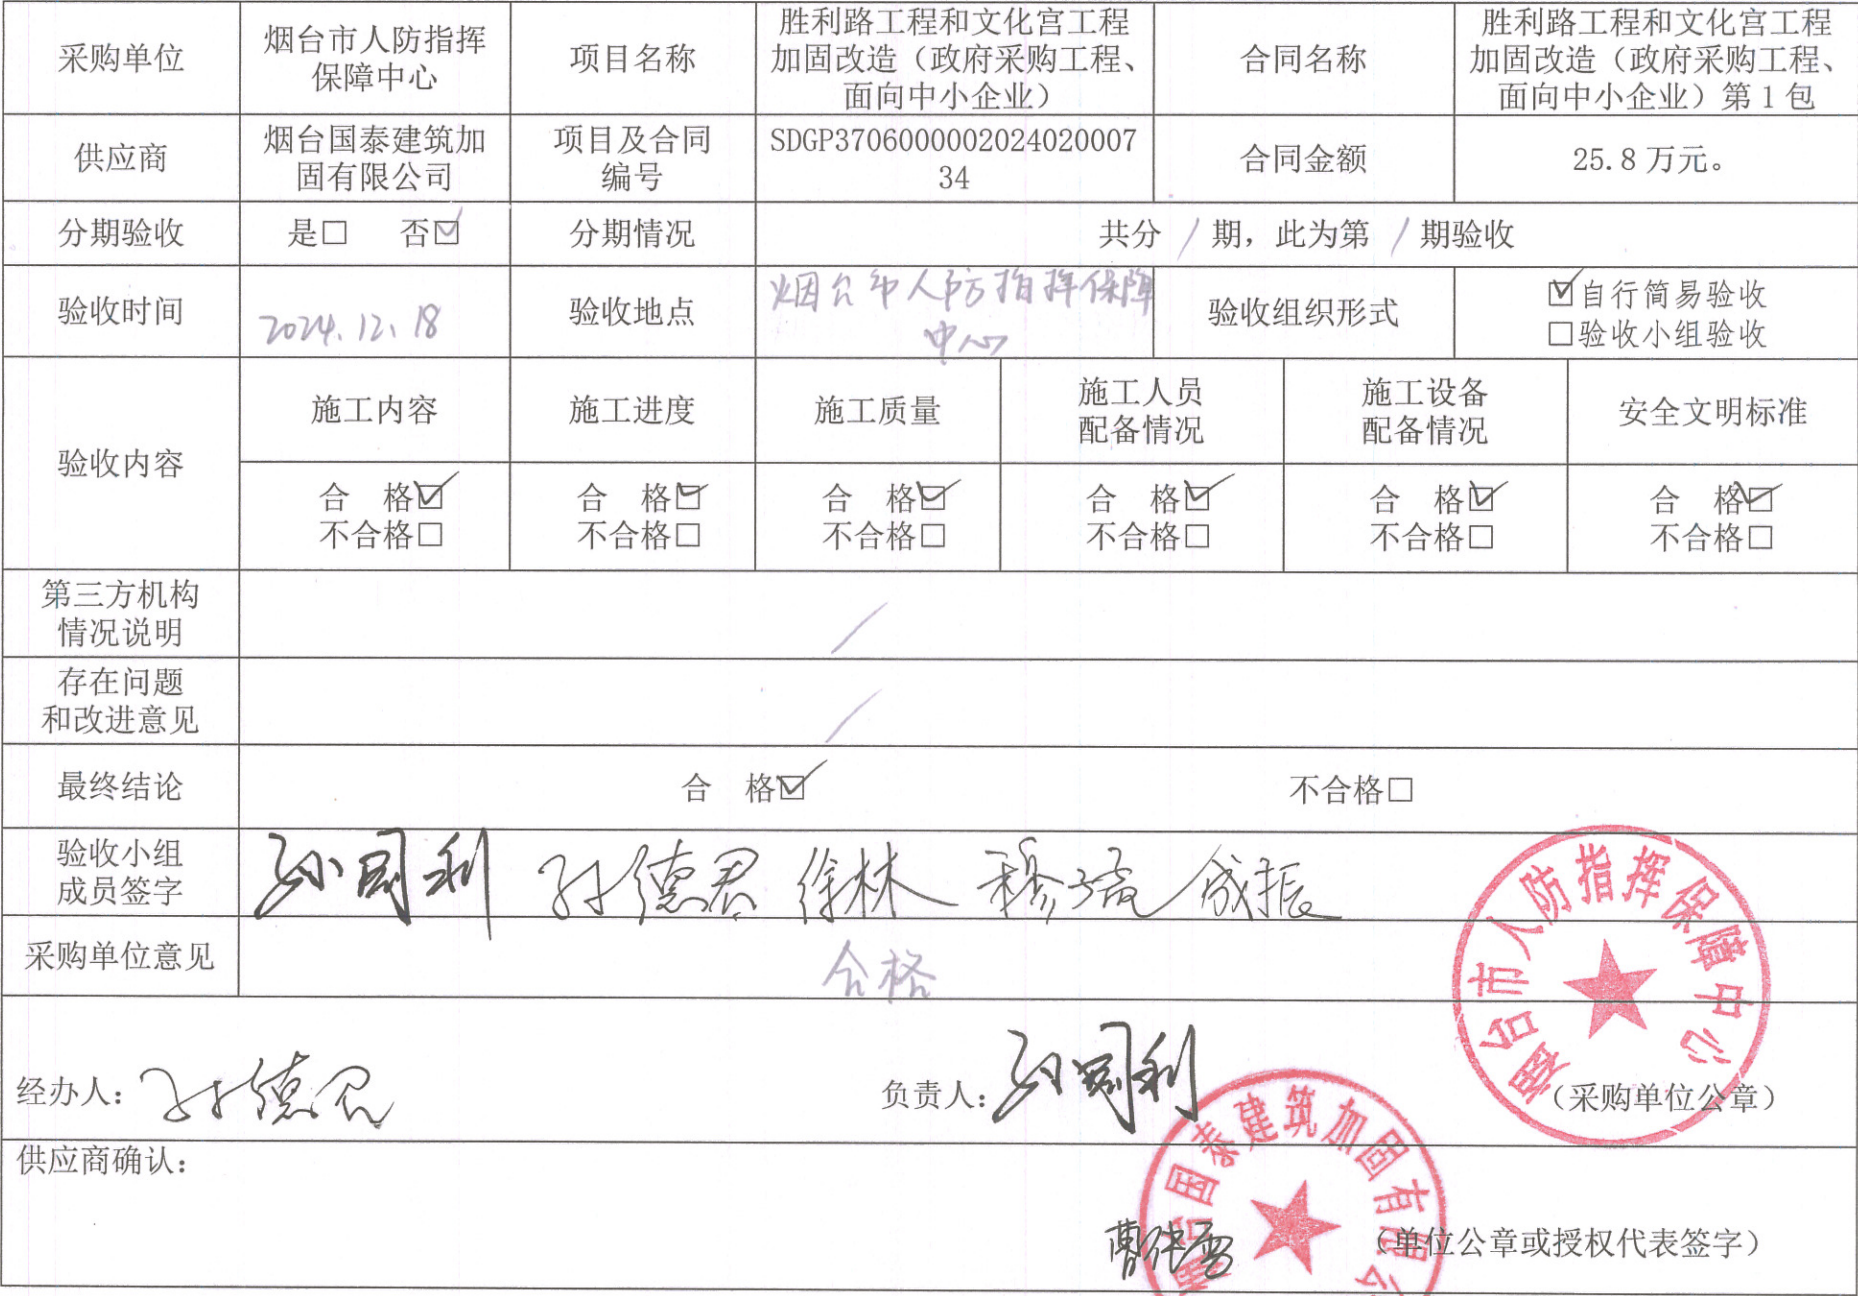 采购单位
烟台市人防指挥
保障中心
项目名称
胜利路工程和文化宫工程
加固改造（政府采购工程、
面向中小企业）
合同名称
胜利路工程和文化宫工程
加固改造（政府采购工程、
面向中小企业）第1包
供应商
烟台国泰建筑加
固有限公司
项目及合同
编号
SDGP3706000002024020007
34
合同金额
25.8万元。
分期验收
是□ 否☑
分期情况
共分 / 期，此为第 / 期验收
验收时间
2024.12.18
验收地点
烟台市人防指挥保障
中心
验收组织形式
☑自行简易验收
□验收小组验收
验收内容
施工内容
施工进度
施工质量
施工人员
配备情况
施工设备
配备情况
安全文明标准
合 格☑
不合格□
合 格☑
不合格□
合 格☑
不合格□
合 格☑
不合格□
合 格☑
不合格□
合 格☑
不合格□
第三方机构
情况说明
/
存在问题
和改进意见
/
最终结论
合 格☑
不合格□
验收小组
成员签字
孙 利 孙德君 徐林 穆 成振
采购单位意见
合格
烟台市人防指挥保障中心
经办人：孙德君
负责人：孙 利
（采购单位公章）
供应商确认：
烟台国泰建筑加固有限公
曹
（单位公章或授权代表签字）